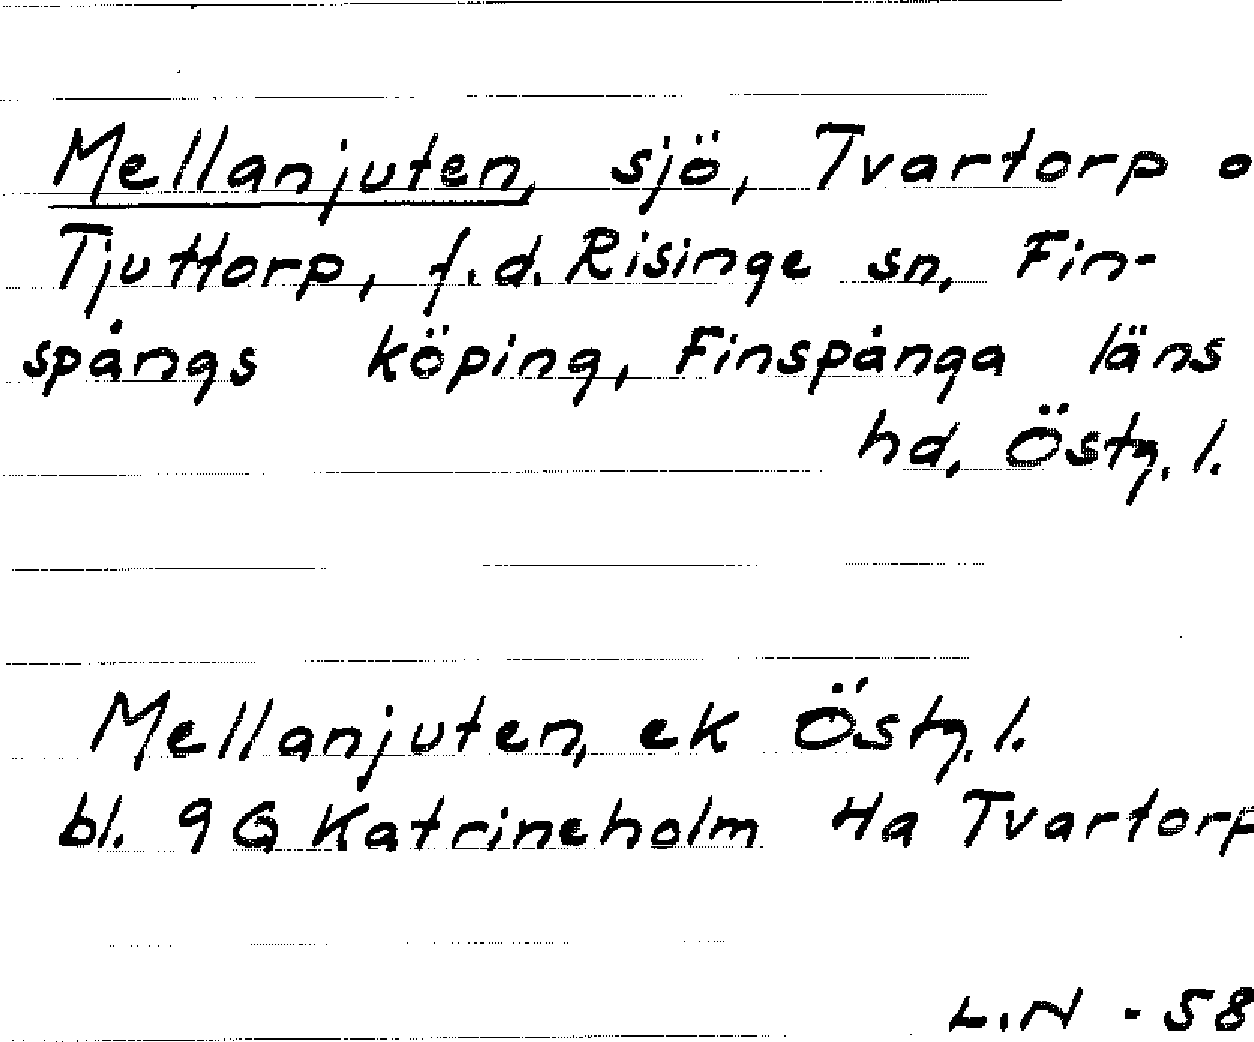 Mellanjuten, sjö, Tvartorp o
Tjuttorp, f.d. Risinge sn, Fin-
spångs köping, Finspånga läns
hd, Östg. l.
Mellanjuten, ek Östg. l.
bl. 9G Katrineholm 4a Tvartorp
L.N - 58